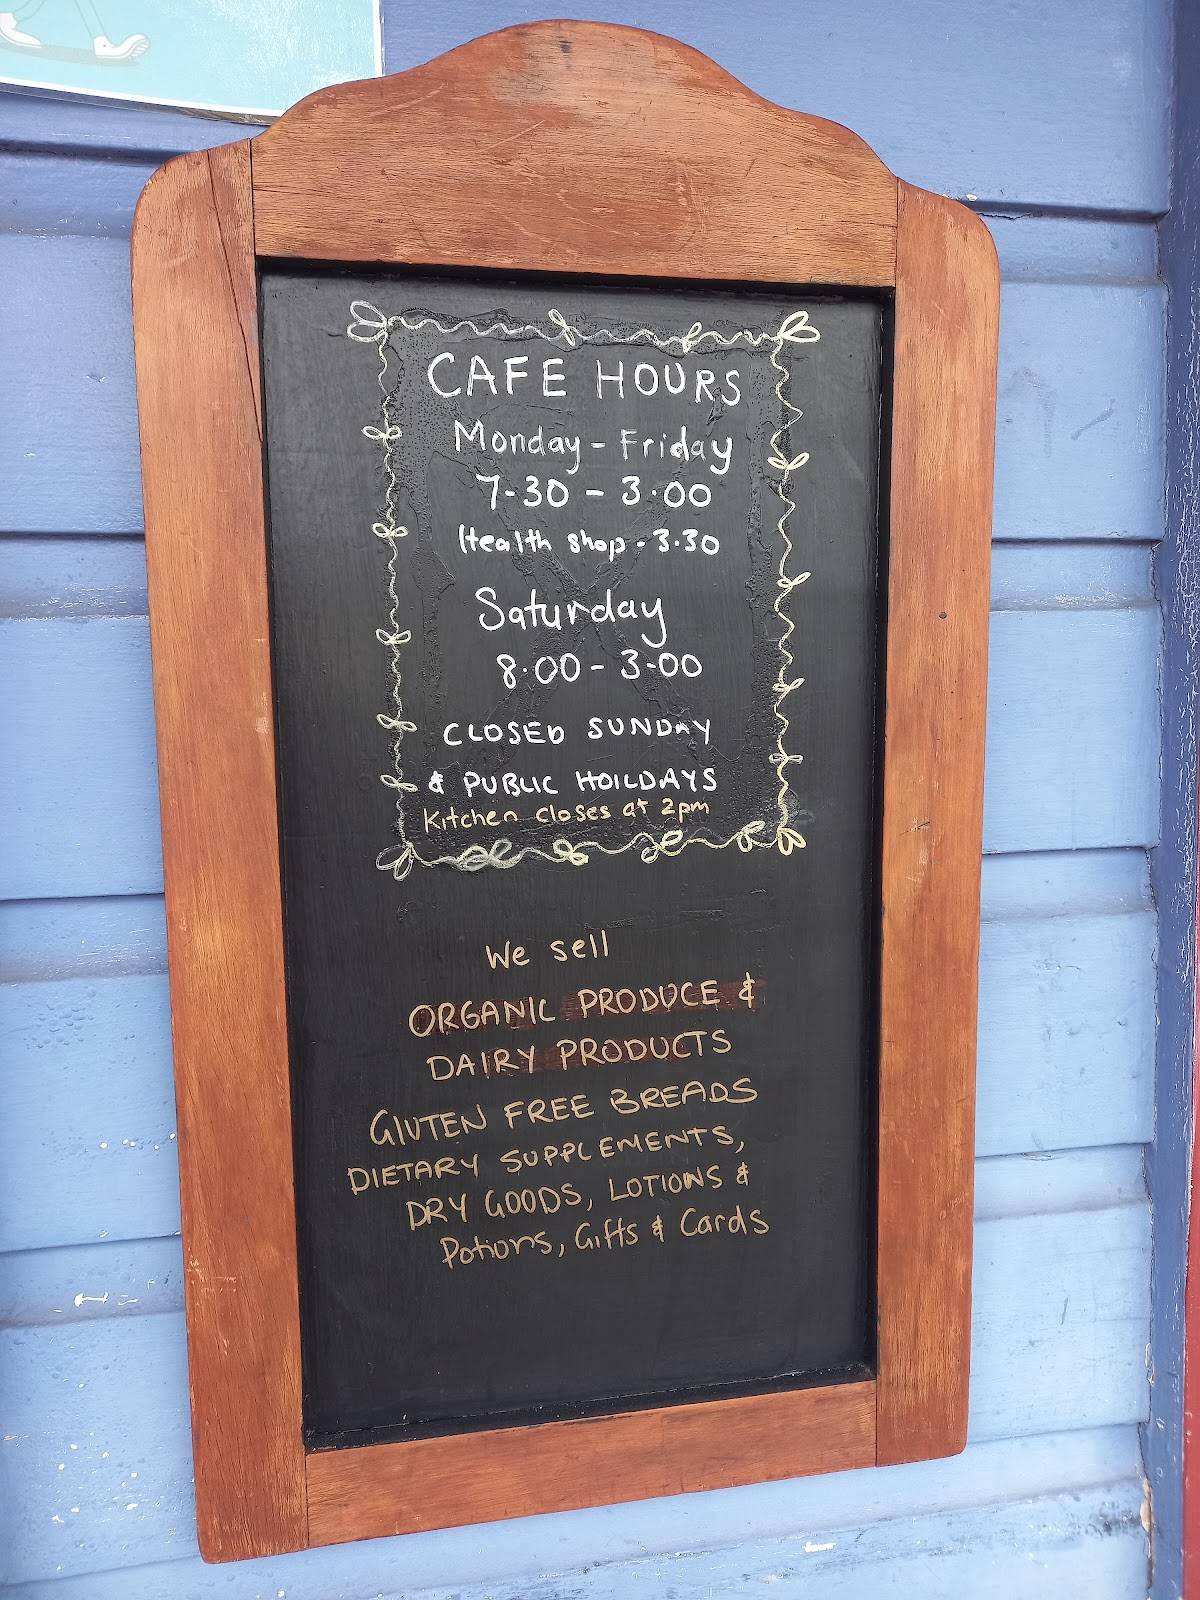 CAFE HOURS
Monday - Friday
7-30 - 3.00
Health shop - 3.30
Saturday
8.00 - 3-00
CLOSED SUNDAY
& PUBLIC HOILDAYS
Kitchen closes at 2pm
We sell
ORGANIC PRODUCE &
DAIRY PRODUCTS
GlUTEN FREE BREADS
DIETARY SUPPLEMENTS,
DRY GOODS, LOTIONS &
Potions, Gifts & Cards